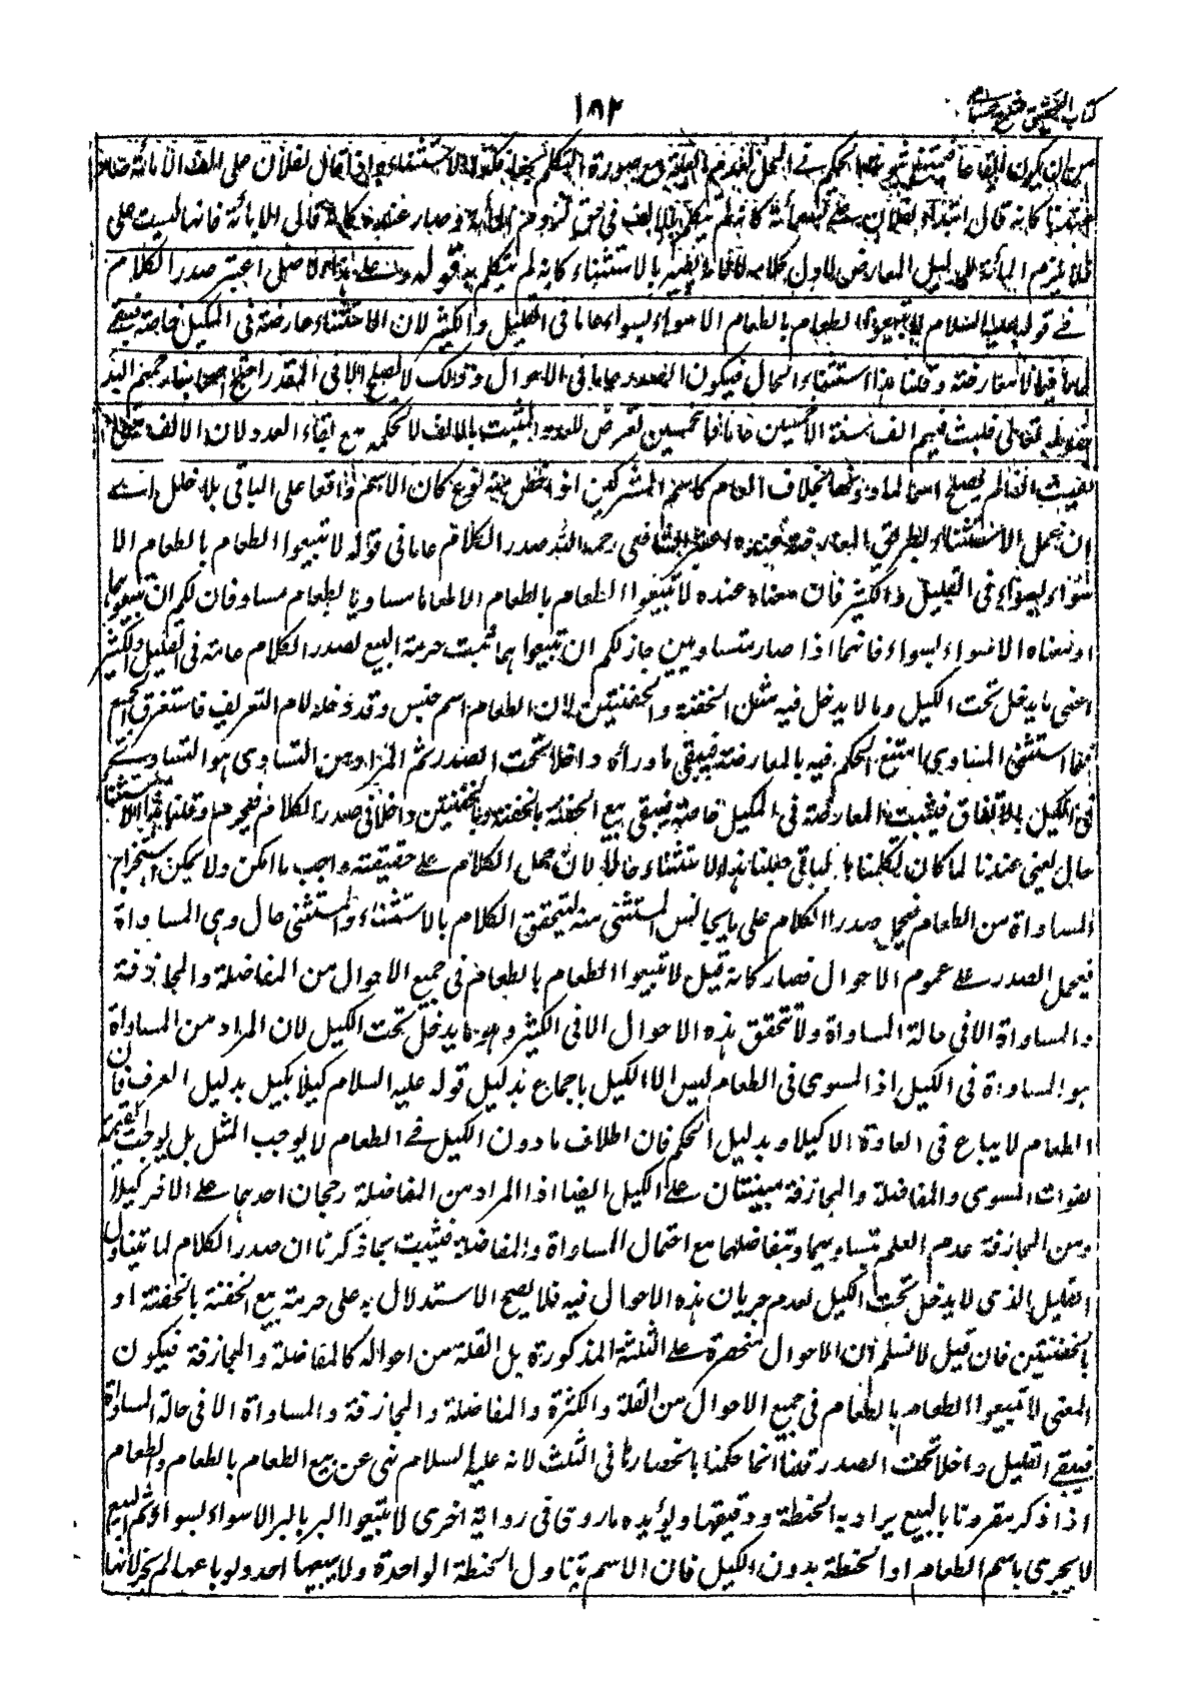 ١٨٢
كتاب التحقيق شرح حسامى
من ان يكون ايقاعا فيمتنع ثبوت الحكم فى المحل لعدم العلة مع صورة التكلم بقدر الاستثناء فاذا قال لفلان على الف الا مائة صار
عندنا كانه قال ابتداء لفلان على تسعمائة كانه لم يتكلم بالالف فى حق لزوم المأئة وصار عنده كانه قال الا مائة فانها ليست على
فلا يلزم المأئة للدليل المعارض لاول كلامه لا لانه يصير بالاستثناء كانه لم يتكلم به قوله وعلى هذا الاصل اعتبر صدر الكلام
فى قوله عليه السلام لا تبيعوا الطعام بالطعام الا سواء بسواء عاما فى القليل والكثير لان الاستثناء عارضه فى المكيل خاصة فبقى
عاما فيما لا معارضة وقلنا هذا استثناء الحال فيكون الصدر عاما فى الاحوال وذلك لا يصلح الا فى المقدر احتج اصحابنا رحمهم الله
بقوله تعالى فلبث فيهم الف سنة الا خمسين عاما فالخمسين تعرض للعدد المثبت بالالف لا لحكمه مع بقاء العدد لان الالف متى
بقيت الفا لم يصلح اسما لما دونها بخلاف العام كاسم المشركين اذا خص منه نوع كان الاسم واقعا على الباقى بلا خلل اى
ان عمل الاستثناء بطريق المعارضة عنده اعتبر الشافعى رحمه الله صدر الكلام عاما فى قوله لا تبيعوا الطعام بالطعام الا
سواء بسواء فى القليل والكثير فان معناه عنده لا تبيعوا الطعام بالطعام الا طعاما مساويا بطعام مساو فان لكم ان تبيعوهما
او معناه الا سواء بسواء فانهما اذا صارا متساويين جاز لكم ان تبيعوا هما فثبت حرمة البيع لصدر الكلام عامة فى القليل والكثير
اعنى ما يدخل تحت الكيل وما لا يدخل فيه مثل الحفنة والحفنتين لان الطعام اسم جنس وقد دخله لام التعريف فاستغرق الجميع
فلما استثنى المساوى امتنع الحكم فيه بالمعارضة فيبقى ما وراءه داخلا تحت الصدر ثم المراد من التساوى هو التساوى
فى الكيل بالاتفاق فيثبت المعارضة فى المكيل خاصة فيبقى بيع الحفنة بالحفنة وبالحفنتين داخلا فى صدر الكلام فيحرم وقلنا هذا الاستثناء
حال يعنى عندنا لما كان تكلمنا بالباقى جعلنا هذا الاستثناء حالا لان حمل الكلام على حقيقته واجب ما امكن ولا يمكن استخراج
المساواة من الطعام فيحمل صدر الكلام على ما يجانس المستثنى منه ليتحقق الكلام بالاستثناء والمستثنى حال وهى المساواة
فيحمل الصدر على عموم الاحوال فصار كانه قيل لا تبيعوا الطعام بالطعام فى جميع الاحوال من المفاضلة والمجازفة
والمساواة الا فى حالة المساواة ولا تتحقق هذه الاحوال الا فى الكثير وهو ما يدخل تحت الكيل لان المراد من المساواة
هو المساواة فى الكيل اذ المسوى فى الطعام ليس الا الكيل باجماع بدليل قوله عليه السلام كيلا بكيل بدليل العرف فان
الطعام لا يباع فى العادة الا كيلا وبدليل الحكم فان اطلاف ما دون الكيل فى الطعام لا يوجب المثل بل يوجب القيمة
لفوات المسوى والمفاضلة والمجازفة مبنيتان على الكيل ايضا اذ المراد من المفاضلة رجحان احدهما على الاخر كيلا
ومن المجازفة عدم العلم بتساويهما وتفاضلهما مع احتمال المساواة والمفاضلة فثبت بما ذكرنا ان صدر الكلام لما تناول
القليل الذى لا يدخل تحت الكيل لعدم جريان هذه الاحوال فيه فلا يصح الاستدلال به على حرمة بيع الحفنة بالحفنة او
بالحفنتين فان قيل لا نسلم ان الاحوال منحصرة على الثلثة المذكورة بل القلة من احواله كالمفاضلة والمجازفة فيكون
المعنى لا تبيعوا الطعام بالطعام فى جميع الاحوال من القلة والكثرة والمفاضلة والمجازفة والمساواة الا فى حالة المساواة
فيبقى القليل داخلا تحت الصدر قلنا انما حكمنا بانحصارها فى الثلث لانه عليه السلام نهى عن بيع الطعام بالطعام والطعام
اذا ذكر مقرونا بالبيع يراد به الحنطة ودقيقها ويؤيده ما روى فى رواية اخرى لا تبيعوا البر بالبر الا سواء بسواء ثم البيع
لا يجرى باسم الطعام او الحنطة بدون الكيل فان الاسم يتناول الحنطة الواحدة ولا يبيعها احد ولو باعها لم يجز لانها